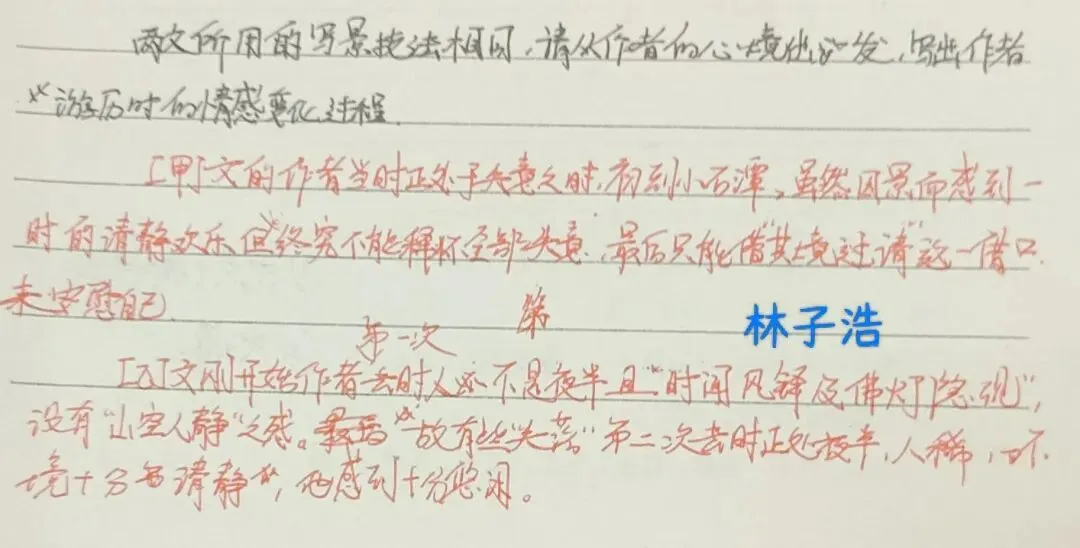 两文所用的写景技法相同,请从作者的心境出发,写出作者
游历时的情感变化过程.
[甲]文的作者当时正处于失意之时,初到小石潭,虽然因景而感到一
时的清静欢乐但终究不能释怀全部失意.最后只能借"其境过清"这一借口.
来安慰自己.
第一次 第
林子浩
[乙]文刚开始作者去时人必不是夜半且"时闻风铎及佛灯隐现",
没有"山空人静"之感。故有些"失落"第二次去时正处夜半,人稀,
境十分清静,他感到十分悠闲。